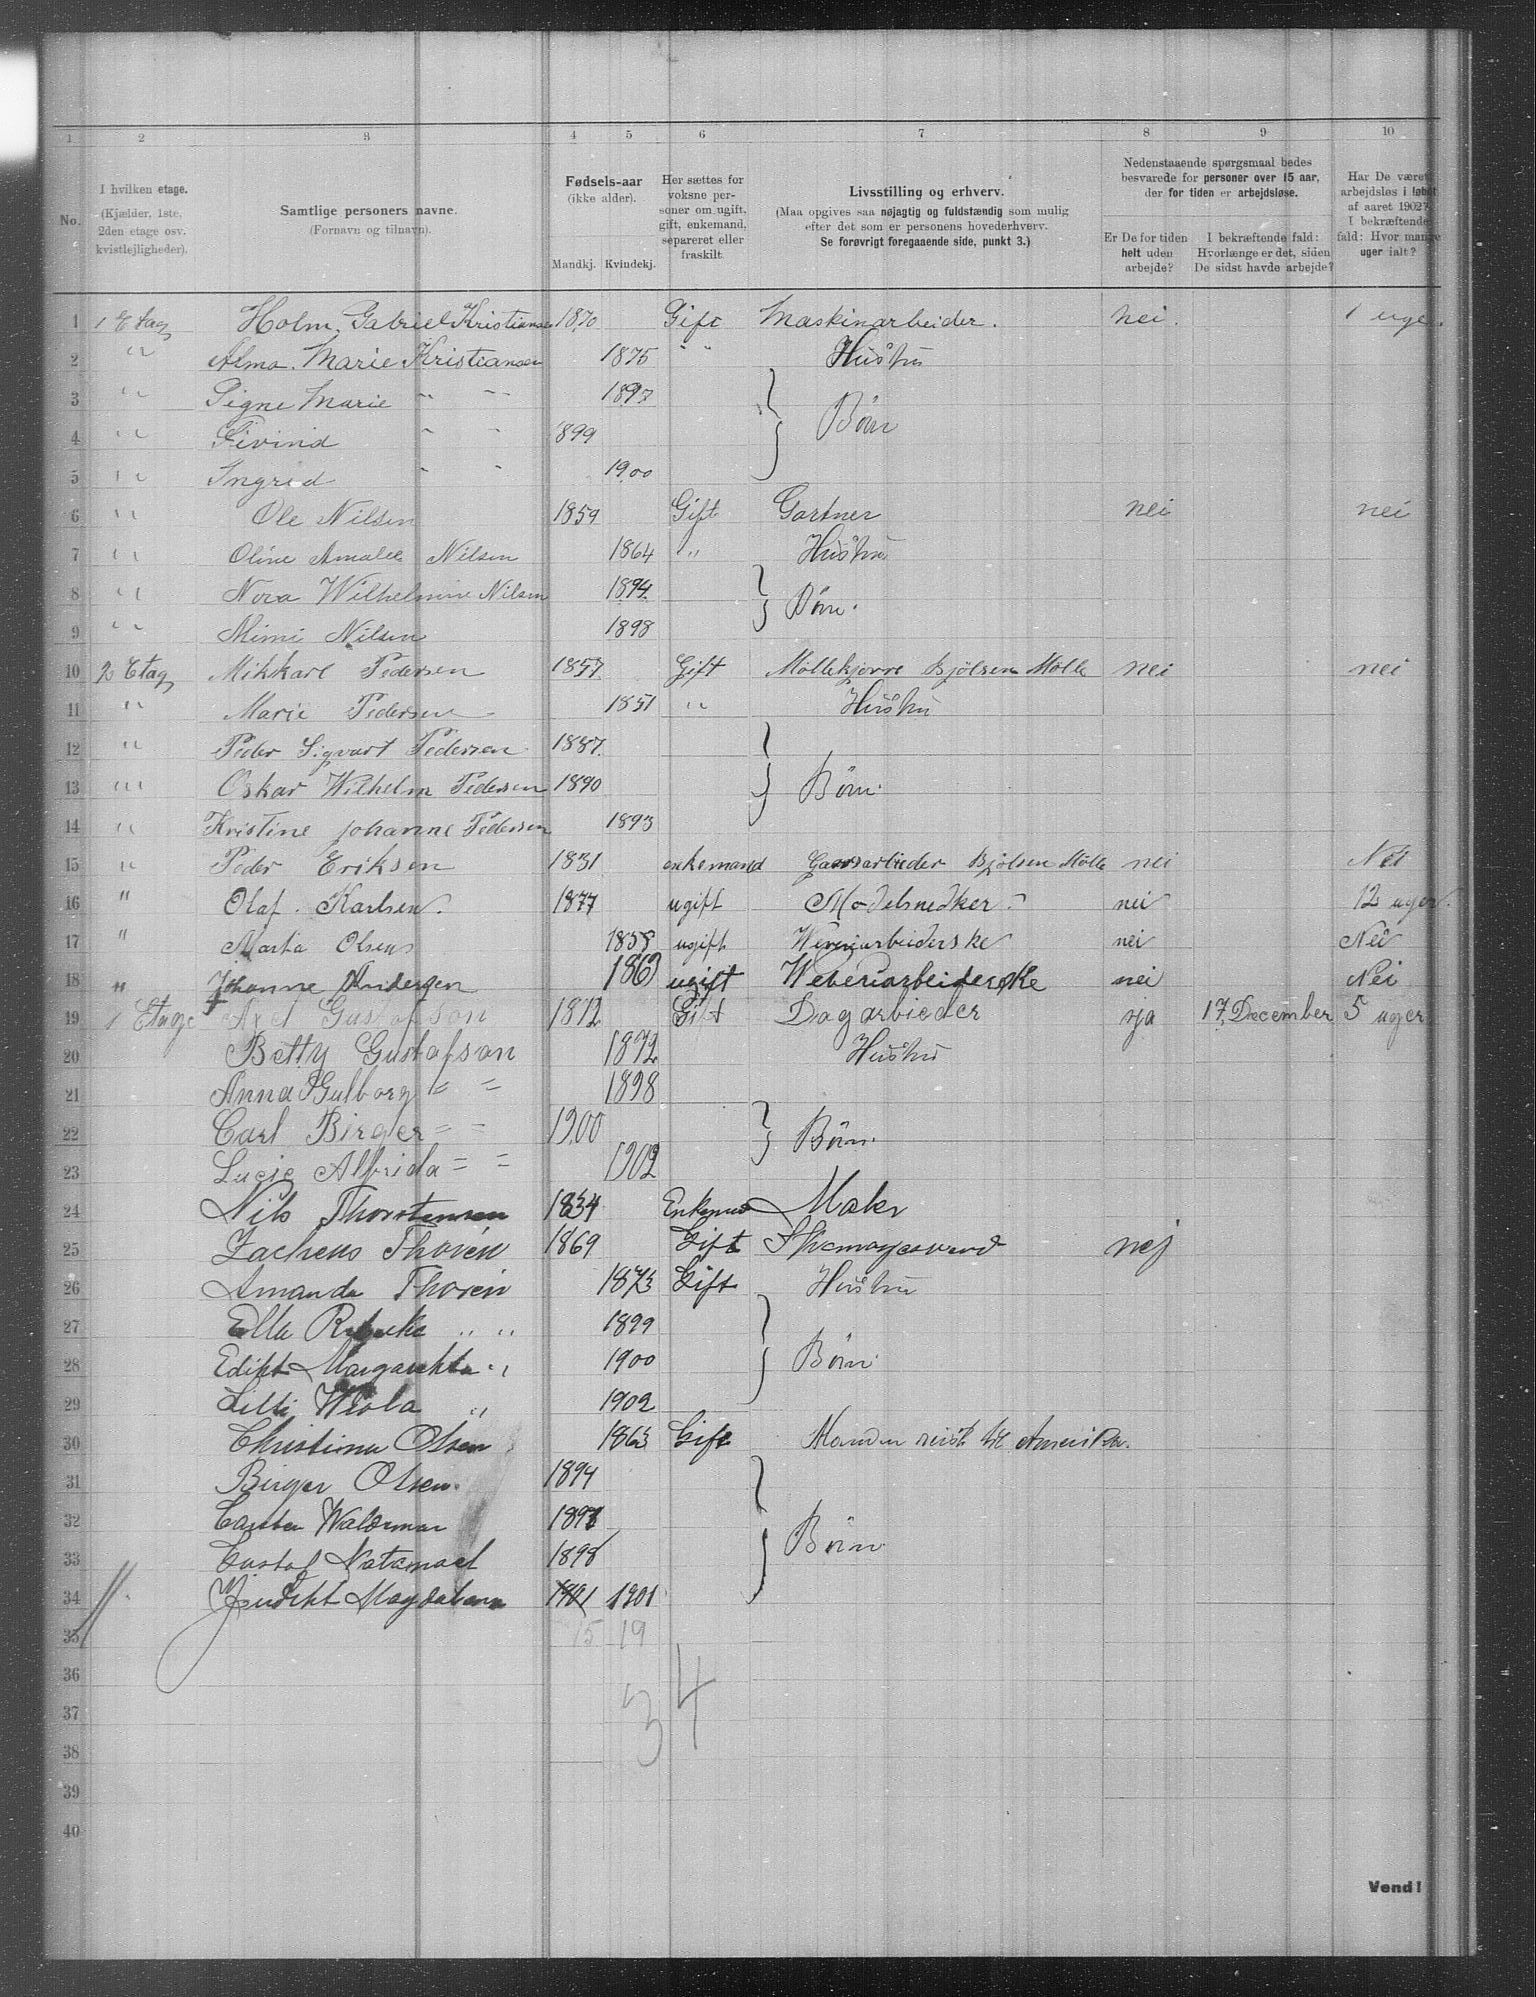 1 2 3 4 5 6 7 8 9 10
No.
I hvilken etage.
(Kjælder, 1ste,
2den etage osv.
kvistlejligheder).
Samtlige personers navne.
(Fornavn og tilnavn).
Fødsels-aar
(ikke alder).
Mandkj. Kvindekj.
Her sættes for
voksne per-
soner om ugift,
gift, enkemand,
separeret eller
fraskilt.
Livsstilling og erhverv.
(Maa opgives saa nøjagtig og fuldstændig som mulig
efter det som er personens hovederhverv.
Se forøvrigt foregaaende side, punkt 3.)
Nedenstaaende spørgsmaal bedes
besvarede for personer over 15 aar,
der for tiden er arbejdsløse.
Er De for tiden
helt uden
arbejde?
I bekræftende fald:
Hvorlænge er det, siden
De sidst havde arbejde?
Har De været
arbejdsløs i løbet
af aaret 1902?
I bekræftende
fald: Hvor mange
uger ialt?
1 1 Etag Holm. Gabriel Kristiansen 1870 Gift Maskinarbeider. nei. 1 uge.
2 " Alma. Marie Kristiansen 1875 " " Hustru
3 " Signe Marie " " 1897
4 " Eivind " " 1899 Børn
5 " Ingrid " " 1900
6 " Ole Nilsen 1859 Gift Gartner nei nei
7 " Oline Amalie Nilsen 1864 " Hustru
8 " Nora Wilhelmine Nilsen 1894. Børn.
9 " Mimi Nilsen 1898
10 2 Etag Mikkael Pedersen 1857 Gift Møllekjører Bjølsen Mølle nei nei
11 " Marie Pedersen 1851 " Hustru
12 " Peder Sigvart Pedersen 1887.
13 " Oskar Wilhelm Pedersen 1890 Børn.
14 " Kristine Johanne Pedersen 1893
15 " Peder Eriksen 1831 enkemand Gaardsarbieder Bjølsen Mølle nei Nei
16 " Olaf. Karlsen. 1877 ugift Modelsnedker. nei 12 uger.
17 " Marta Olsen 1858 ugift Veveriarbeiderske nei Nei
18 " Johanne Andersen 1863 ugift Veveriarbeiderske nei Nei
19 1 Etage Axel Gustafson 1872 Gift Dagarbieder ja 17 December 5 uger
20 Betty Gustafson 1872 Hustru
21 Anna Gulborg = = 1898
22 Carl Birger = = 1900 Børn.
23 Lucie Alfrida = = 1902
24 Nils Thorstensen 1834 Enkemd Maler
25 Zacheus Thorén 1869 Gift Skomagersvend nej
26 Amanda Thorén 1873 Gift Hustru
27 Ella Rebeka " " 1899
28 Edikt Margarehta " 1900 Børn.
29 Lilli Wiola " 1902
30 Christiana Olsen 1863 Gift Manden reist til Amerika.
31 Birger Olsen. 1894
32 Carsten Waldemar 1897
33 Gustaf Natanael 1898 Børn
34 Judikt Magdalena 1901 1901
35 15 19
36 34
37
38
39
40
Vend!